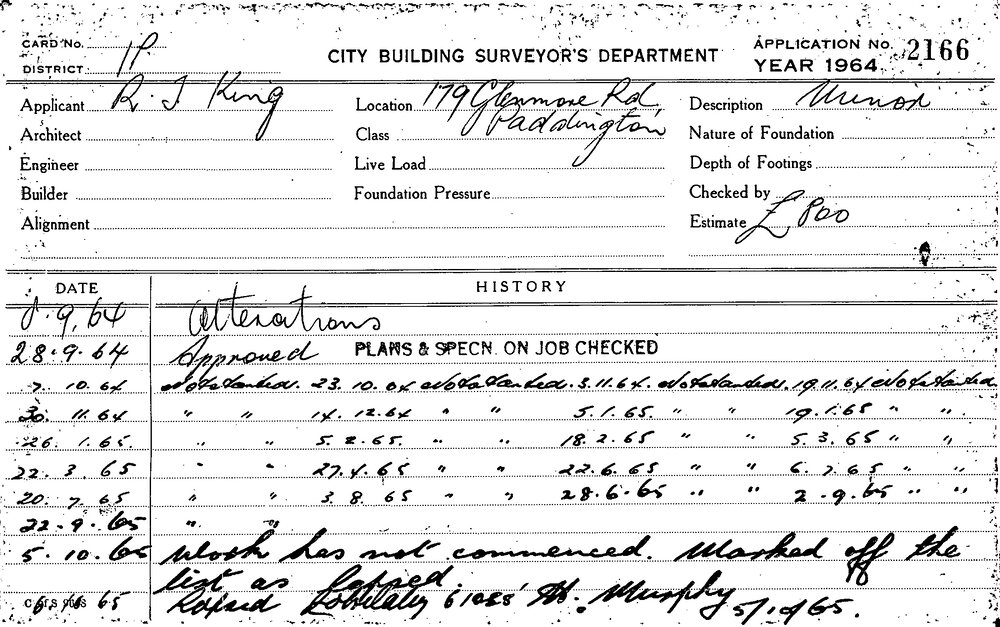 CARD No. 11
CITY BUILDING SURVEYOR'S DEPARTMENT
APPLICATION No. 2166
DISTRICT
YEAR 1964
Applicant R. J King
Location 179 Glenmore Rd, Paddington
Description Minor
Architect
Class
Nature of Foundation
Engineer
Live Load
Depth of Footings
Builder
Foundation Pressure
Checked by
Alignment
Estimate £ 800
DATE HISTORY
8.9.64 Alterations
28.9.64 Approved PLANS & SPECN. ON JOB CHECKED
7.10.64 Not started. 23.10.64 Not started. 3.11.64. Not started. 19.11.64 Not started
30.11.64 " " 14.12.64 " " 5.1.65. " " 19.1.65 " "
26.1.65. " " 5.2.65. " " 18.2.65 " " 5.3.65 " "
22.3.65 " " 27.4.65 " " 22.6.65 " " 6.7.65 " "
20.7.65 " " 3.8.65 " " 28.6.65 " " 2.9.65 " "
22.9.65 " "
5.10.65 Work has not commenced. Marked off the
list as lapsed.
65 Murphy 5/10/65.